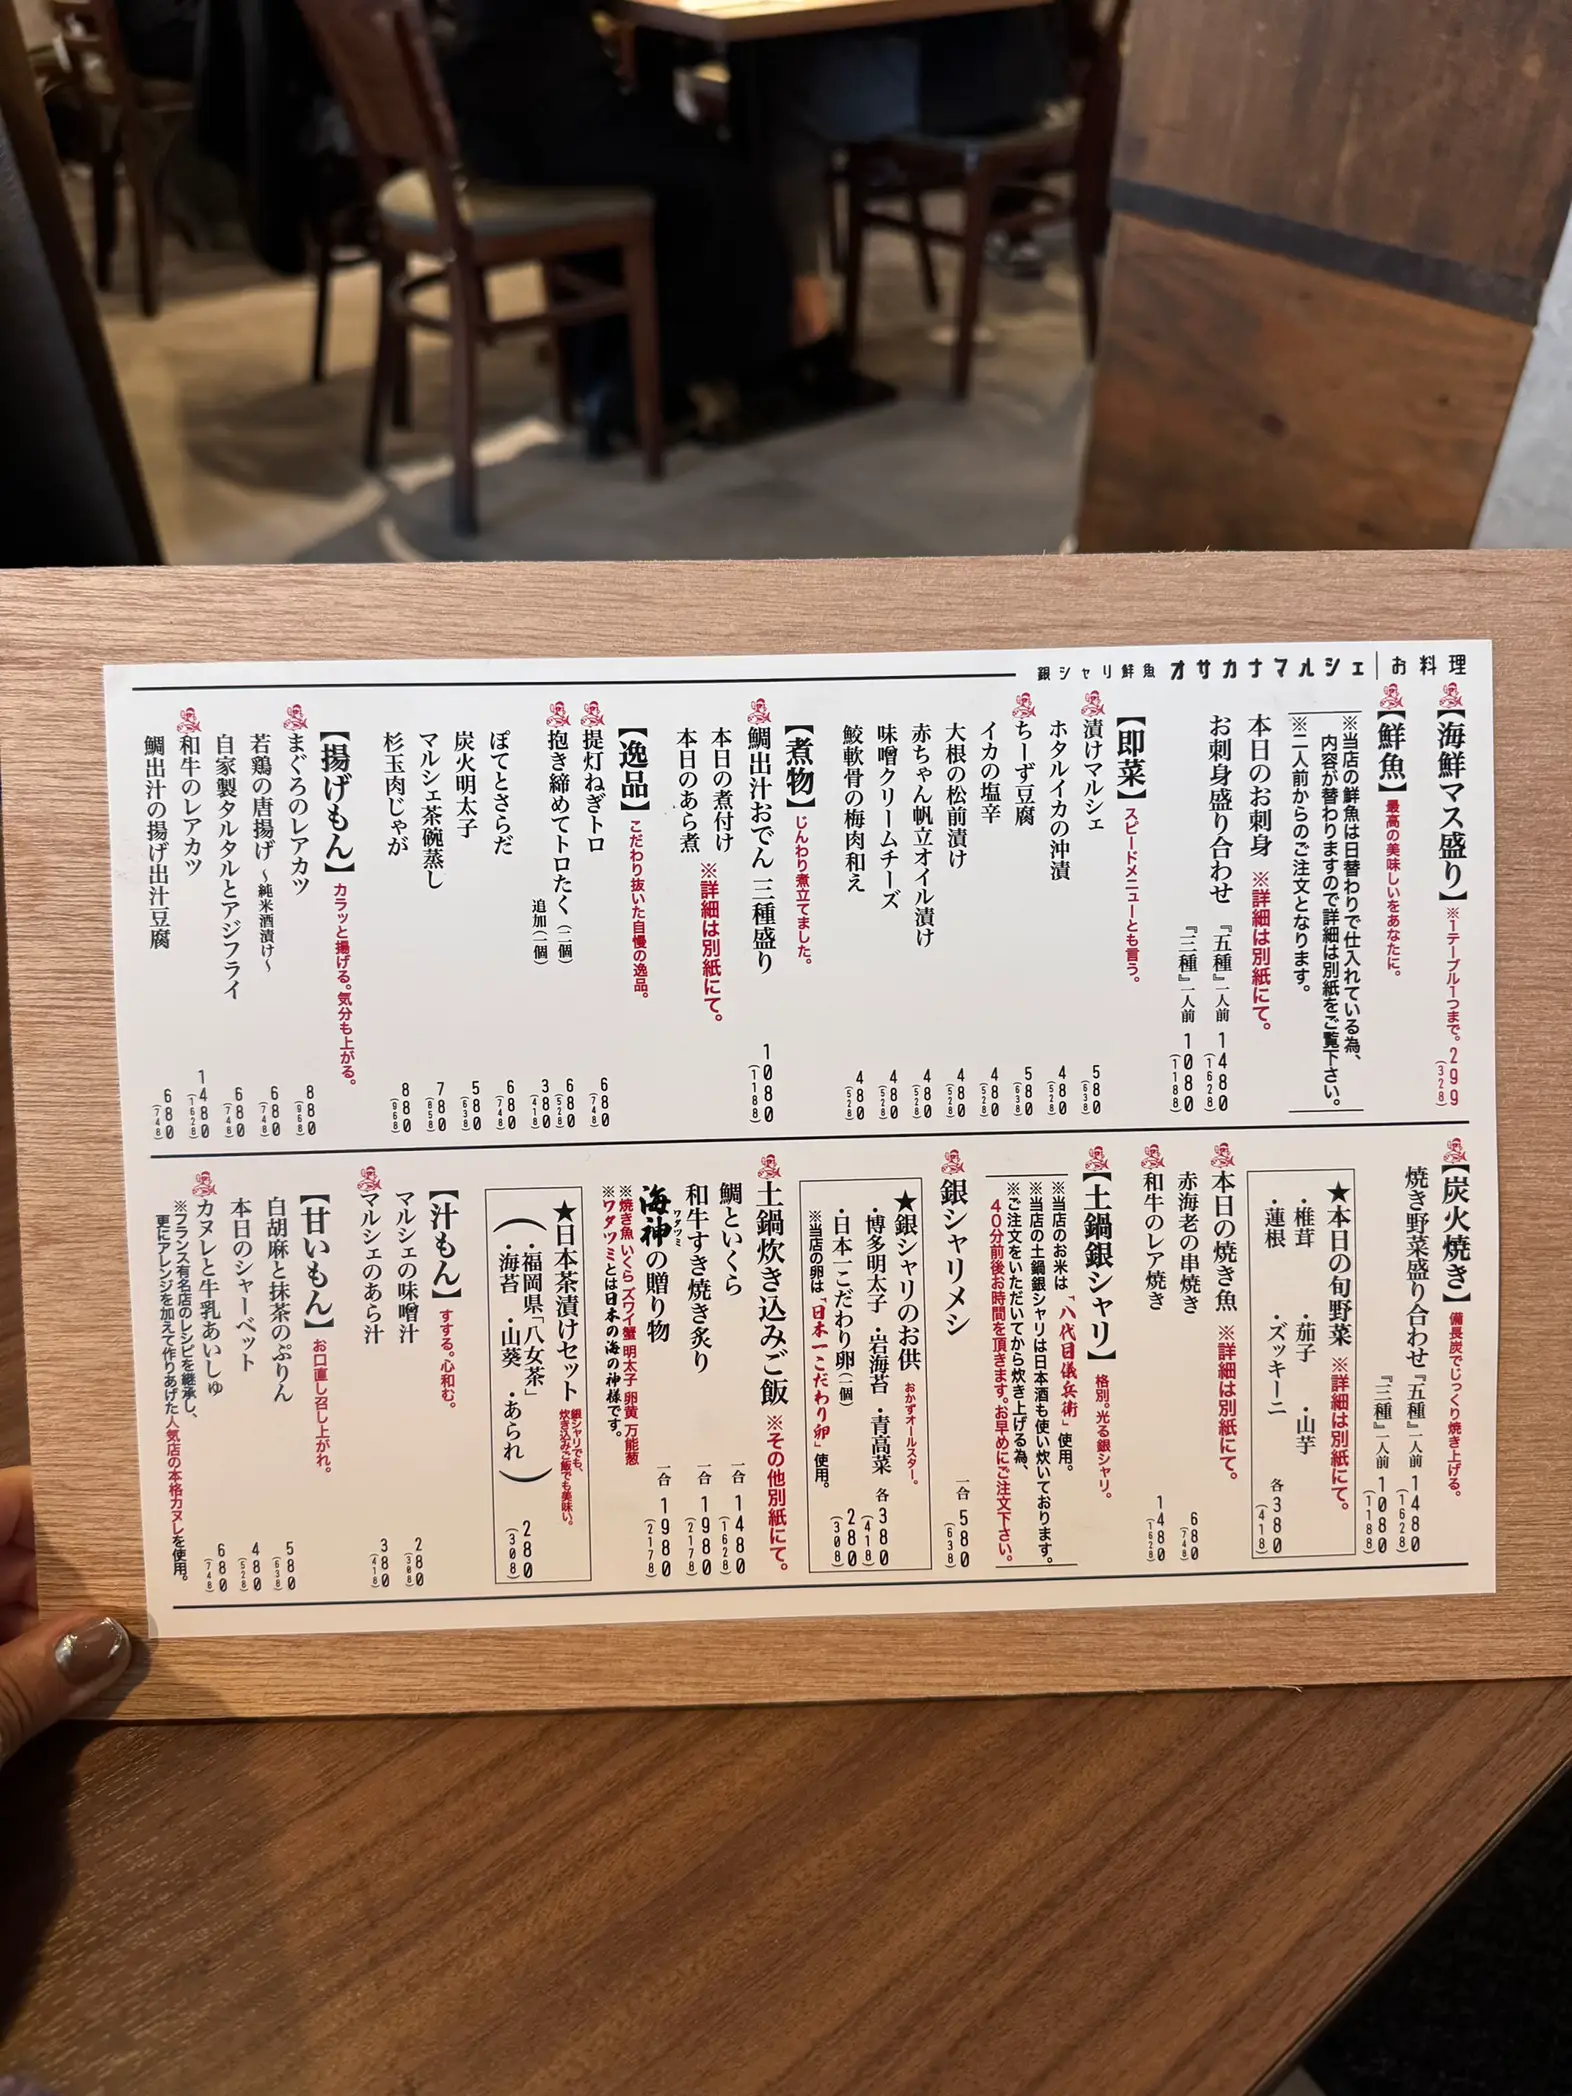 銀シャリ鮮魚 オサカナマルシェ｜お料理
【海鮮マス盛り】※1テーブル1つまで。299(328)
【鮮魚】最高の美味しいをあなたに。
※当店の鮮魚は日替わりで仕入れている為、
内容が替わりますので詳細は別紙をご覧下さい。
※二人前からのご注文となります。
本日のお刺身 ※詳細は別紙にて。
お刺身盛り合わせ『五種』一人前 1480(1628)
『三種』一人前 1080(1188)
【即菜】スピードメニューとも言う。
漬けマルシェ 580(638)
ホタルイカの沖漬 480(528)
ちーず豆腐 580(638)
イカの塩辛 480(528)
大根の松前漬け 480(528)
赤ちゃん帆立オイル漬け 480(528)
味噌クリームチーズ 480(528)
鮫軟骨の梅肉和え 480(528)
【煮物】じんわり煮立てました。
鯛出汁おでん 三種盛り 1080(1188)
本日の煮付け ※詳細は別紙にて。
本日のあら煮
【逸品】こだわり抜いた自慢の逸品。
提灯ねぎトロ 680(748)
抱き締めてトロたく(二個) 680(528)
追加(一個) 380(418)
ぽてとさらだ 680(748)
炭火明太子 580(638)
マルシェ茶碗蒸し 780(858)
杉玉肉じゃが 880(968)
【揚げもん】カラッと揚げる。気分も上がる。
まぐろのレアカツ 880(968)
若鶏の唐揚げ ～純米酒漬け～ 680(748)
自家製タルタルとアジフライ 680(748)
和牛のレアカツ 1480(1628)
鯛出汁の揚げ出汁豆腐 680(748)
【炭火焼き】備長炭でじっくり焼き上げる。
焼き野菜盛り合わせ『五種』一人前 1480(1628)
『三種』一人前 1080(1188)
★本日の旬野菜 ※詳細は別紙にて。
・椎茸 ・茄子 ・山芋
・蓮根 ・ズッキーニ 各380(418)
本日の焼き魚 ※詳細は別紙にて。
赤海老の串焼き 680(748)
和牛のレア焼き 1480(1628)
【土鍋銀シャリ】格別。光る銀シャリ。
※当店のお米は、「八代目儀兵衛」使用。
※当店の土鍋銀シャリは日本酒も使い炊いております。
※ご注文をいただいてから炊き上げる為、
40分前後お時間を頂きます。お早めにご注文下さい。
銀シャリメシ 一合 580(638)
★銀シャリのお供 おかずオールスター。
・博多明太子 ・岩海苔 ・青高菜 各380(418)
・日本一こだわり卵(一個) 280(308)
※当店の卵は「日本一こだわり卵」使用。
土鍋炊き込みご飯 ※その他別紙にて。
鯛といくら 一合 1480(1628)
和牛すき焼き炙り 一合 1980(2178)
海神の贈り物 一合 1980(2178)
ワダツミ
※焼き魚 いくら ズワイ蟹 明太子 卵黄 万能葱
※ワダツミとは日本の海の神様です。
★日本茶漬けセット 銀シャリでも、
炊き込みご飯でも美味い。
・福岡県「八女茶」 ・あられ
・海苔 ・山葵 280(308)
【汁もん】すする。心和む。
マルシェの味噌汁 280(308)
マルシェのあら汁 380(418)
【甘いもん】お口直し召し上がれ。
白胡麻と抹茶のぷりん 580(638)
本日のシャーベット 480(528)
カヌレと牛乳あいしゅ 680(748)
※フランス有名店のレシピを継承し、
更にアレンジを加えて作りあげた人気店の本格カヌレを使用。